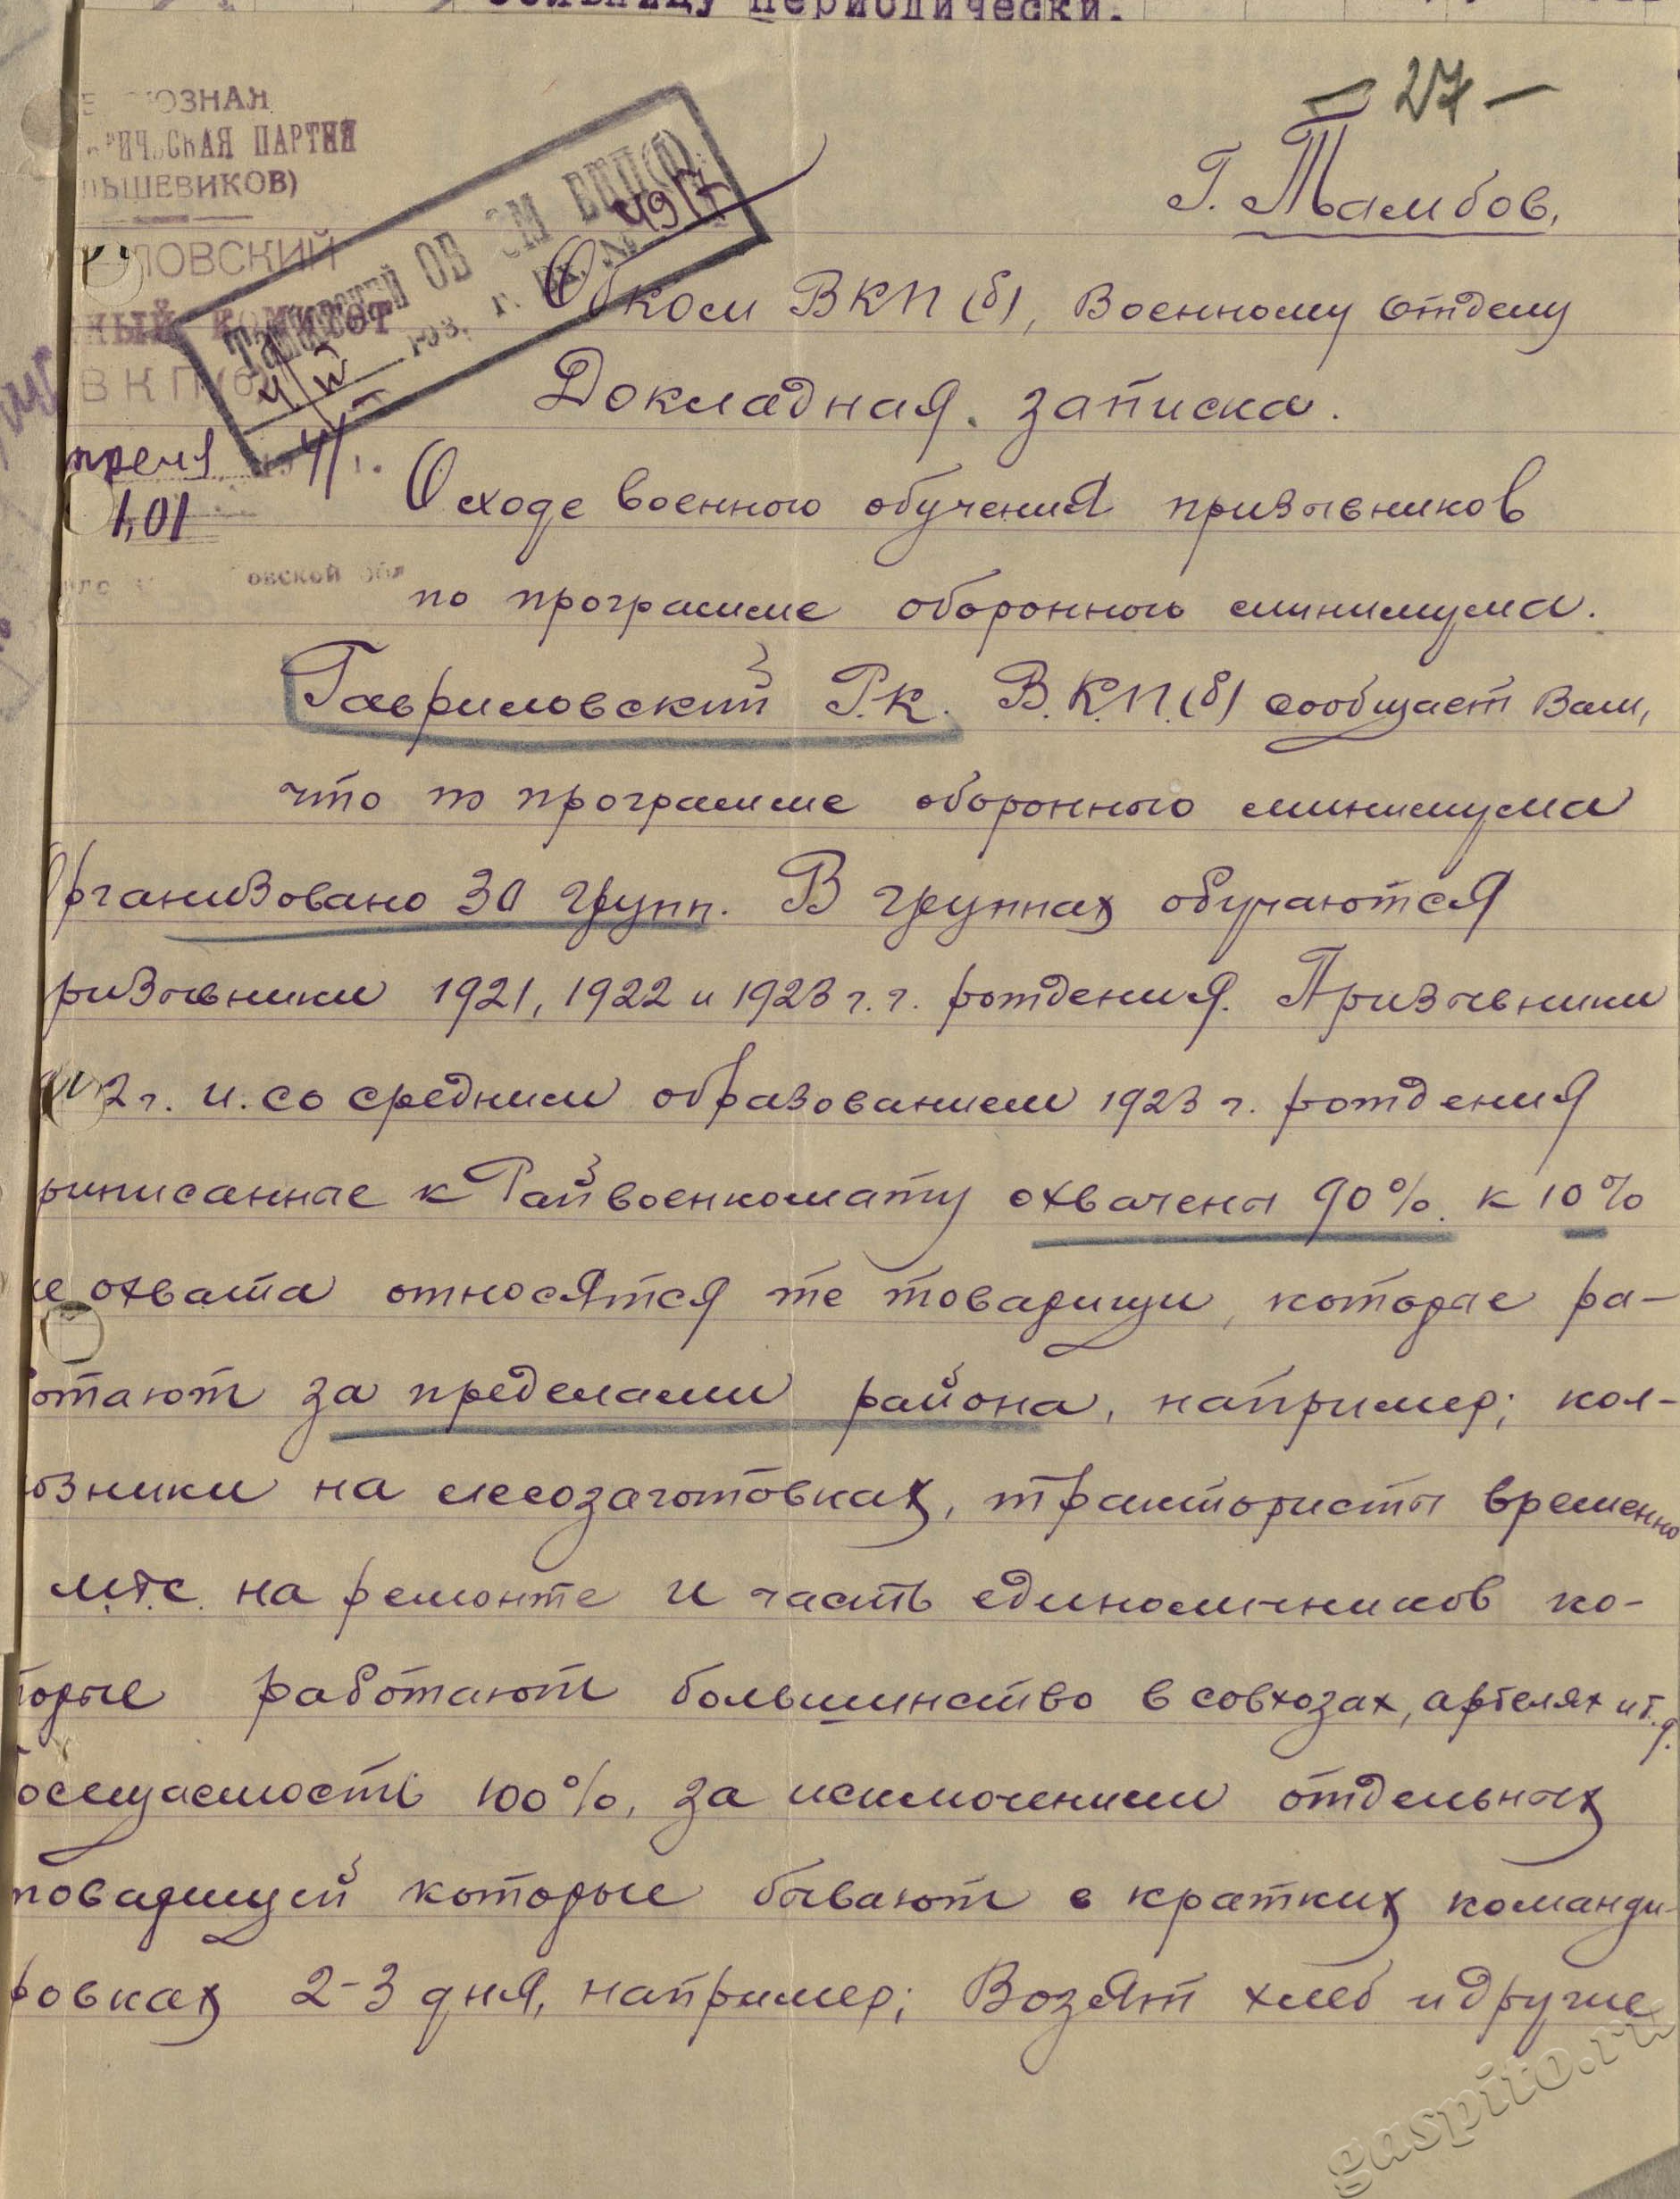 периодически.
27
ОЗНАЯ
ПАРТИЯ
ЛЬШЕВИКОВ)
ЛОВСКИЙ
НЫЙ КОМИТЕТ
ВКП(б)
41 г.
овской обл
Г. Тамбов,
Обком ВКП(б), Военному отделу
Докладная записка.
О ходе военного обучения призывников
по программе оборонного минимума.
Гавриловский Р.К. В.К.П.(б) сообщает Вам,
что по программе оборонного минимума
Организовано 30 групп. В группах обучаются
ризывники 1921, 1922 и 1923 г.г. рождения. Призывники
2 г. и со средним образованием 1923 г. рождения
риписанные к Райвоенкомату охвачены 90%. к 10%
е охвата относятся те товарищи, которые ра-
отают за пределами района, например; кол-
озники на лесозаготовках, трактористы временно
М.Т.С. на ремонте и часть единоличников ко-
торые работают большинство в совхозах, артелях и т.д.
осещаемость 100%, за исключением отдельных
товарищей которые бывают в кратких команди-
ровках 2-3 дня, например; Возят хлеб и другие
gaspito.ru